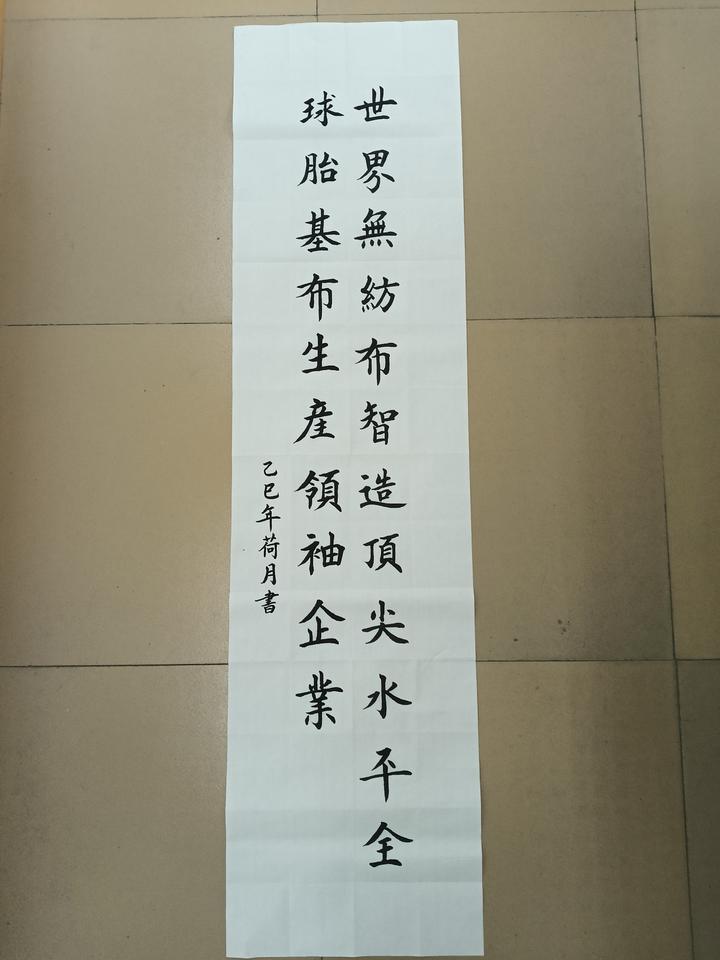 世界無紡布智造頂尖水平全
球胎基布生産領袖企業
乙巳年荷月書